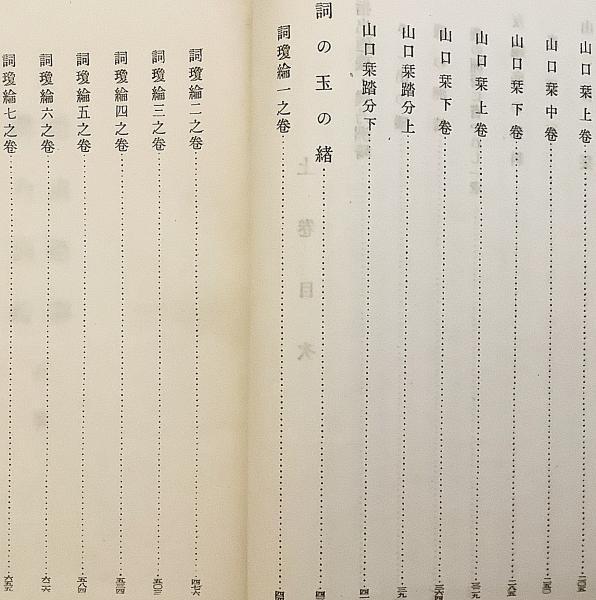 山口栞上卷 二〇五
山口栞中卷 二五〇
山口栞下卷 二八五
山口栞上卷 三二九
山口栞下卷 三六四
山口栞踏分上 三九
山口栞踏分下 四一
詞の玉の緒
詞瓊綸一之卷
詞瓊綸二之卷 四七六
詞瓊綸三之卷 五〇三
詞瓊綸四之卷 五三四
詞瓊綸五之卷 五八四
詞瓊綸六之卷 六二六
詞瓊綸七之卷 六五五